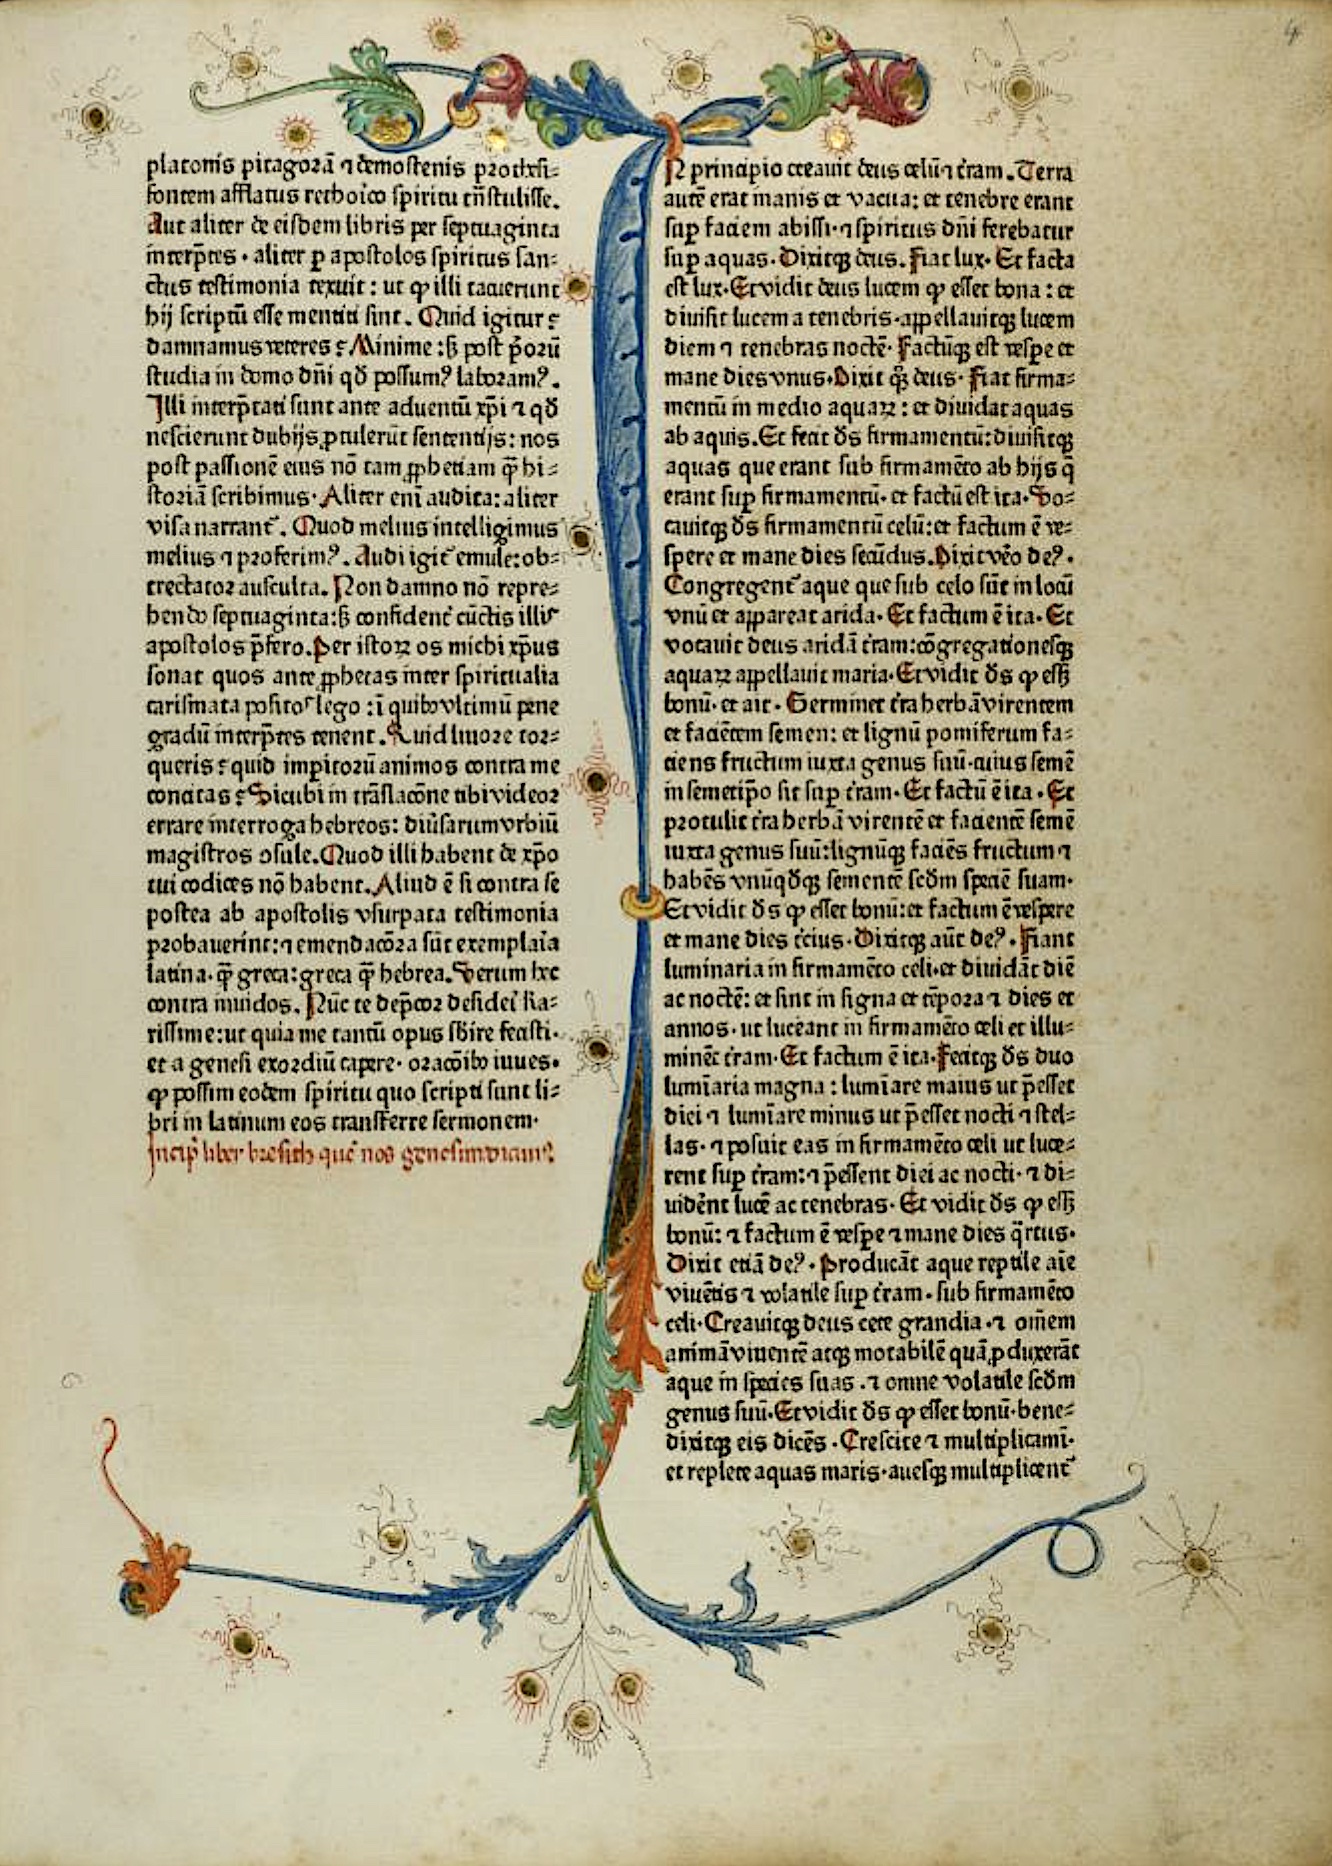 platonis pitagorā ⁊ demostenis prothesi-
fontem afflatus rethoico spiritu tn̄stulisse.
Aut aliter de eisdem libris per septuaginta
interp̄tes · aliter ꝑ apostolos spiritus san-
ctus testimonia texuit : ut ꝙ illi tacuerunt
hij scriptū esse mentiti sint. Quid igitur?
damnamus veteres? Minime : sꝫ post p̄orū
studia in domo dn̄i qd̄ possumꝰ laboramꝰ.
Illi interp̄tati sunt ante aduentū xp̄i ⁊ qd̄
nescierunt dubijs ꝓtulerūt sententijs: nos
post passionē eius nō tam ꝓphetiam q̄ hi-
storiā scribimus. Aliter eni audita: aliter
visa narrant᷑. Quod melius intelligimus
melius ⁊ proferimꝰ. Audi igit᷑ emule: ob-
trectator ausculta. Non damno nō repre-
hendo septuaginta: sꝫ confident᷑ cūctis illis
apostolos p̄fero. Per istoꝝ os michi xp̄us
sonat quos ante ꝓphetas inter spiritualia
carismata positos lego : ī quibꝰ vltimū pene
gradū interp̄tes tenent. Quid liuore tor-
queris? quid imꝑitorū animos contra me
concitas? Sicubi in trāslacōne tibi videor
errare interroga hebreos: diūsarum vrbiū
magistros ꝯsule. Quod illi habent de xp̄o
tui codices nō habent. Aliud ē si contra se
postea ab apostolis vsurpata testimonia
probauerint: ⁊ emendacōra sūt exemplaīa
latina · q̄ greca: greca q̄ hebrea. Verum hec
contra inuidos. Nūc te dep̄cor desideī ka-
rissime: ut quia me tantū opus sb̄ire fecisti·
et a genesi exordiū capere · oracōibꝰ iuues·
ꝙ possim eodem spiritu quo scripti sunt li-
bri in latinum eos transferre sermonem·
Incip̄ liber bresith quē nos genesim dicimꝰ
N principio creauit deus celū ⁊ t̄ram. Terra
autē erat inanis et vacua: et tenebre erant
suꝑ faciem abissi · ⁊ spiritus dn̄i ferebatur
suꝑ aquas. Dixitqꝫ deus. Fiat lux. Et facta
est lux. Et vidit deus lucem ꝙ esset bona : et
diuisit lucem a tenebris · appellauitqꝫ lucem
diem ⁊ tenebras noctē. Factūqꝫ est vespe et
mane dies vnus. Dixit qꝫ deus. Fiat firma-
mentū in medio aquaꝝ : et diuidat aquas
ab aquis. Et fecit ds̄ firmamentū: diuisitqꝫ
aquas que erant sub firmamēto ab hijs q̄
erant suꝑ firmamentū · et factū est ita. Vo-
cauitqꝫ ds̄ firmamentū celū: et factum ē ve-
spere et mane dies secūdus. Dixit vēo deꝰ.
Congregent᷑ aque que sub celo sūt in locū
vnū et appareat arida. Et factum ē ita. Et
vocauit deus aridā t̄ram: cōgregationesqꝫ
aquaꝝ appellauit maria. Et vidit ds̄ ꝙ essꝫ
bonū · et ait. Germinet t̄ra herbā virentem
et faciētem semen: et lignū pomiferum fa-
ciens fructum iuxta genus suū · cuius semē
in semetiꝑo sit suꝑ t̄ram. Et factū ē ita. Et
protulit t̄ra herbā virentē et facientē semē
iuxta genus suū: lignūqꝫ faciēs fructum ⁊
habēs vnūqd̄qꝫ sementē scd̄m speciē suam.
Et vidit ds̄ ꝙ esset bonū: et factum ē vespere
et mane dies t̄cius. Dixitqꝫ aūt deꝰ. Fiant
luminaria in firmamēto celi · et diuidāt diē
ac noctē: et sint in signa et tēpora ⁊ dies et
annos · ut luceant in firmamēto celi et illu-
minēt t̄ram. Et factum ē ita. Fecitqꝫ ds̄ duo
lumīaria magna : lumīare maius ut p̄esset
diei ⁊ lumīare minus ut p̄esset nocti ⁊ stel-
las · ⁊ posuit eas in firmamēto celi ut luce-
rent suꝑ t̄ram: ⁊ p̄essent diei ac nocti · ⁊ di-
uidēnt lucē ac tenebras. Et vidit ds̄ ꝙ essꝫ
bonū: ⁊ factum ē vespe ⁊ mane dies q̄rtus.
Dixit etiā deꝰ. Producāt aque reptile aīe
viuētis ⁊ volatile suꝑ t̄ram · sub firmamēto
celi. Creauitqꝫ deus cete grandia · ⁊ om̄em
animā viuentē atqꝫ motabilē quā ꝓduxerāt
aque in species suas · ⁊ omne volatile scd̄m
genus suū. Et vidit ds̄ ꝙ esset bonū · bene-
dixitqꝫ eis dicēs. Crescite ⁊ multiplicami·
et replete aquas maris · auesqꝫ multiplicent᷑